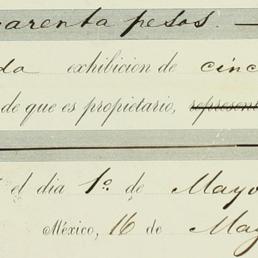 arenta pesos. —
da exhibicion de cinc
de que es propietario, represent
el dia 1º de Mayo
México, 16 de May